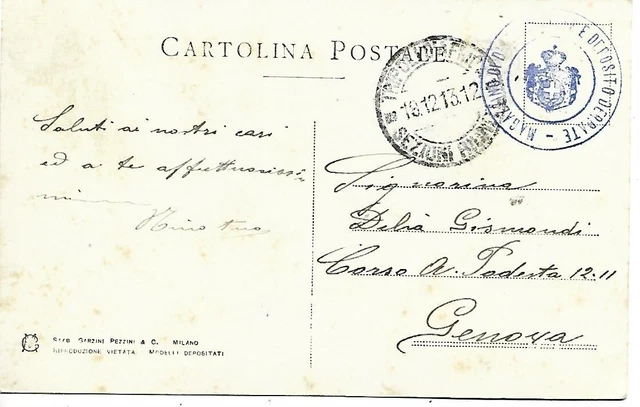 CARTOLINA POSTALE
18.12.13.12
SEZIONI RIUNITE
E DEPOSITO DERRATE - MAGAZZINO
Saluti ai nostri cari
ed a te affettuosissi
mi
Nino tuo
Signorina
Delià Gismondi
Corso A. Podesta 12.11
Genova
STAB GARZINI PEZZINI & C. MILANO
RIPRODUZIONE VIETATA. MODELLI DEPOSITATI